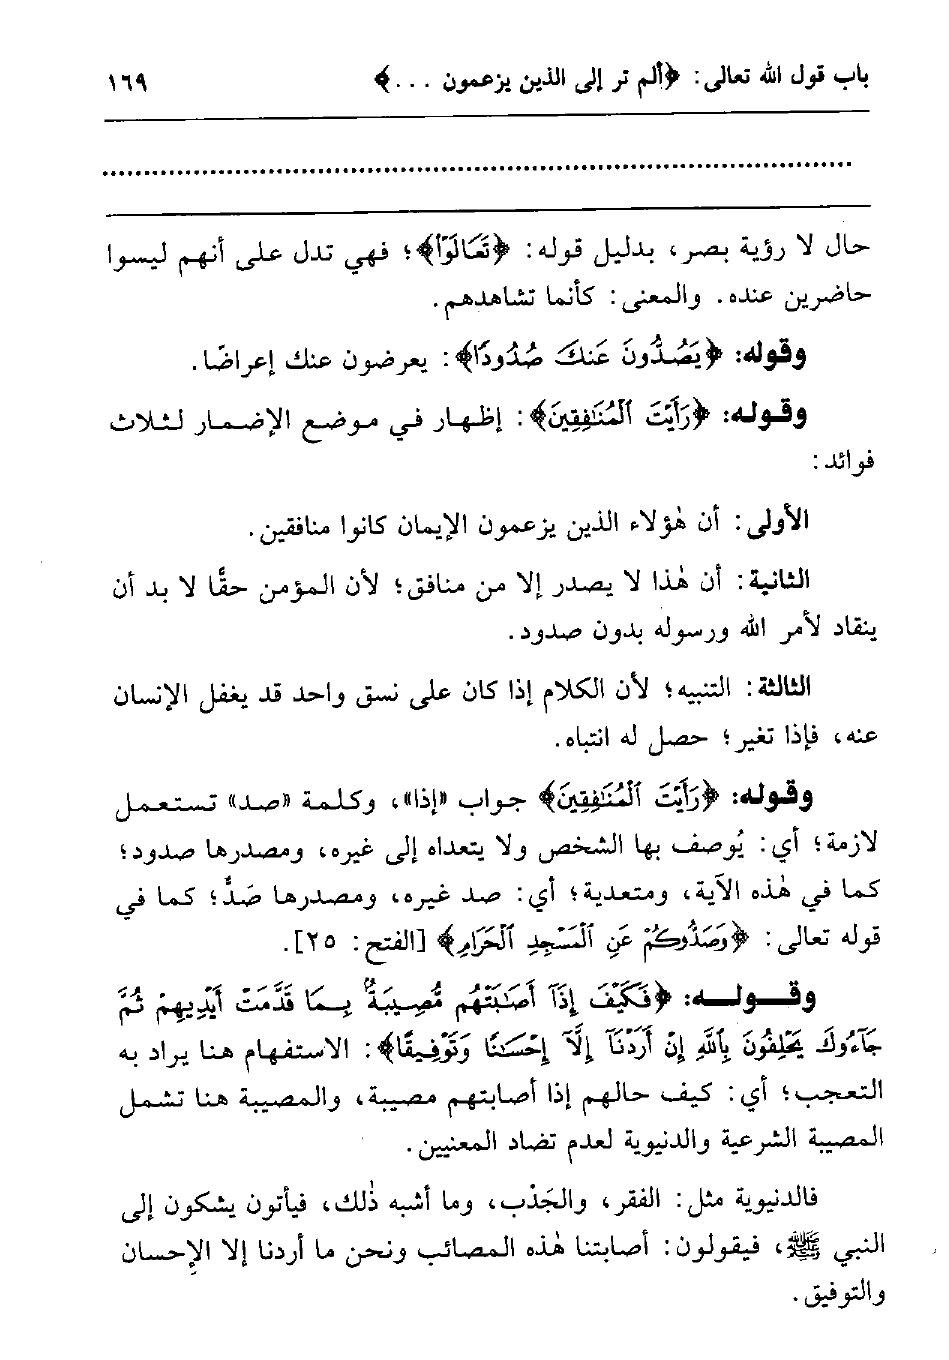 باب قول الله تعالى: ﴿ألم تر إلى الذين يزعمون ...﴾ ١٦٩
حال لا رؤية بصر، بدليل قوله: ﴿تَعَالَوْا۟﴾؛ فهي تدل على أنهم ليسوا
حاضرين عنده. والمعنى: كأنما تشاهدهم.
وقوله: ﴿يَصُدُّونَ عَنكَ صُدُودًا﴾: يعرضون عنك إعراضًا.
وقوله: ﴿رَأَيْتَ ٱلْمُنَٰفِقِينَ﴾: إظهار في موضع الإضمار لثلاث
فوائد:
الأولى: أن هٰؤلاء الذين يزعمون الإيمان كانوا منافقين.
الثانية: أن هٰذا لا يصدر إلا من منافق؛ لأن المؤمن حقًّا لا بد أن
ينقاد لأمر الله ورسوله بدون صدود.
الثالثة: التنبيه؛ لأن الكلام إذا كان على نسق واحد قد يغفل الإنسان
عنه، فإذا تغير؛ حصل له انتباه.
وقوله: ﴿رَأَيْتَ ٱلْمُنَٰفِقِينَ﴾ جواب «إذا»، وكلمة «صد» تستعمل
لازمة؛ أي: يُوصف بها الشخص ولا يتعداه إلى غيره، ومصدرها صدود؛
كما في هٰذه الآية، ومتعدية؛ أي: صد غيره، ومصدرها صَدٌّ؛ كما في
قوله تعالى: ﴿وَصَدُّوكُمْ عَنِ ٱلْمَسْجِدِ ٱلْحَرَامِ﴾ [الفتح: ٢٥].
وقوله: ﴿فَكَيْفَ إِذَآ أَصَٰبَتْهُم مُّصِيبَةٌۢ بِمَا قَدَّمَتْ أَيْدِيهِمْ ثُمَّ
جَآءُوكَ يَحْلِفُونَ بِٱللَّهِ إِنْ أَرَدْنَآ إِلَّآ إِحْسَٰنًا وَتَوْفِيقًا﴾: الاستفهام هنا يراد به
التعجب؛ أي: كيف حالهم إذا أصابتهم مصيبة، والمصيبة هنا تشمل
المصيبة الشرعية والدنيوية لعدم تضاد المعنيين.
فالدنيوية مثل: الفقر، والجَدْب، وما أشبه ذٰلك، فيأتون يشكون إلى
النبي ﷺ، فيقولون: أصابتنا هٰذه المصائب ونحن ما أردنا إلا الإحسان
والتوفيق.